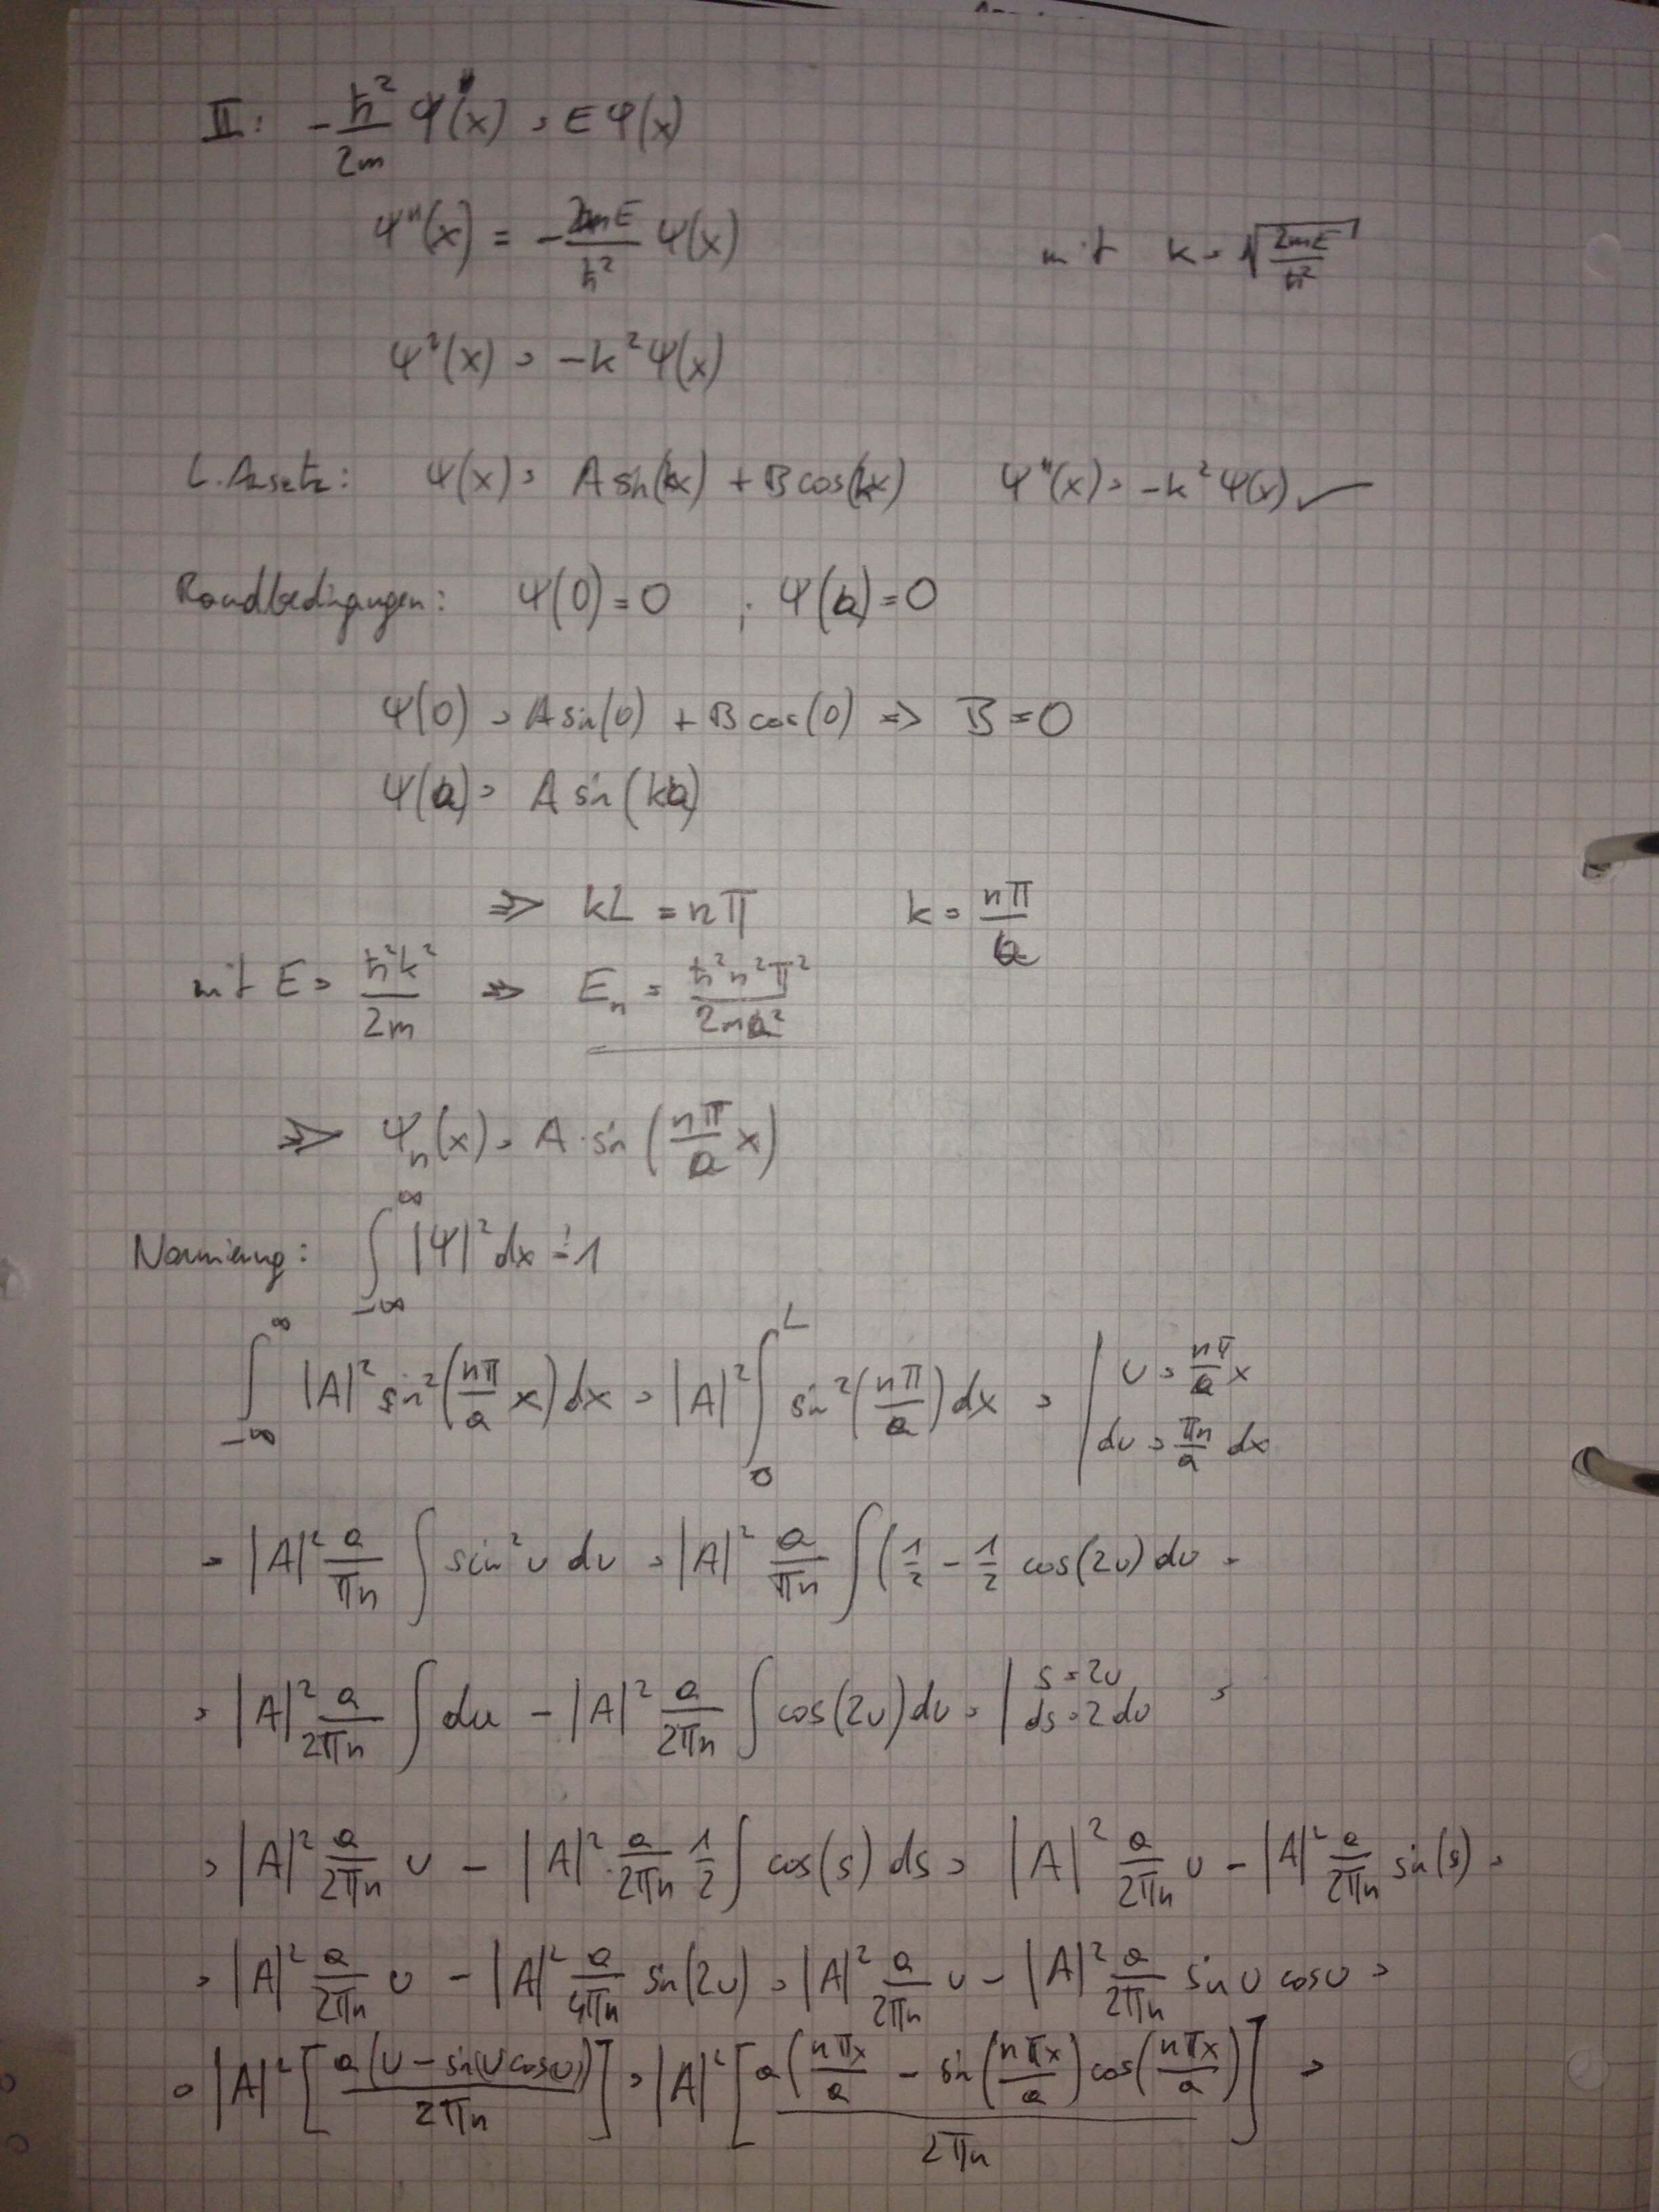 II: -ħ²/2m Ψ''(x) = E Ψ(x)
Ψ''(x) = -2mE/ħ² Ψ(x) mit k = √(2mE/ħ²)
Ψ²(x) = -k² Ψ(x)
L. Ansatz: Ψ(x) = A sin(kx) + B cos(kx) Ψ''(x) = -k² Ψ(x) ✓
Randbedingungen: Ψ(0) = 0 ; Ψ(a) = 0
Ψ(0) = A sin(0) + B cos(0) => B = 0
Ψ(a) = A sin(ka)
=> kL = nπ k = nπ/a
mit E = ħ²k²/2m => Eₙ = ħ²n²π²/2ma²
=> Ψₙ(x) = A · sin(nπ/a x)
Normierung: ∫_{-∞}^{∞} |Ψ|² dx =! 1
∫_{-∞}^{∞} |A|² sin²(nπ/a x) dx = |A|² ∫_0^L sin²(nπ/a) dx = | u = nπ/a x
du = πn/a dx
= |A|² a/πn ∫ sin² u du = |A|² a/πn ∫ (1/2 - 1/2 cos(2u) du =
= |A|² a/2πn ∫ du - |A|² a/2πn ∫ cos(2u) du = | s = 2u
ds = 2 du =
= |A|² a/2πn u - |A|² · a/2πn 1/2 ∫ cos(s) ds = |A|² a/2πn u - |A|² a/2πn sin(s) =
= |A|² a/2πn u - |A|² a/4πn sin(2u) = |A|² a/2πn u - |A|² a/2πn sin u cos u =
= |A|² [a(u - sin(u cos u))/2πn] = |A|² [a(nπx/a - sin(nπx/a) cos(nπx/a)/2πn] =